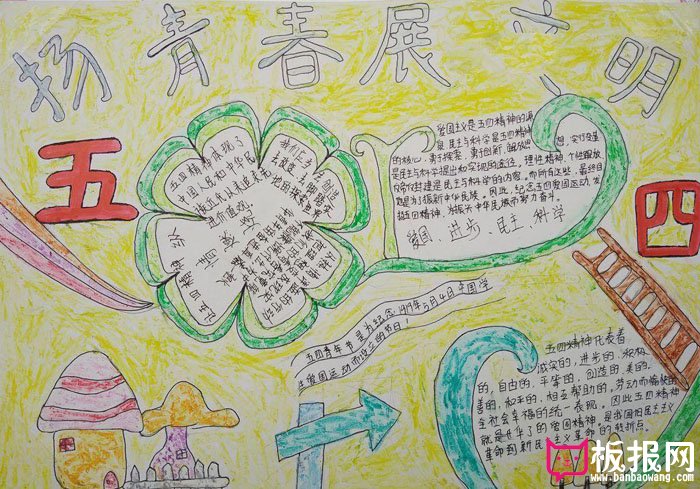 扬青春展文明
五四
五四精神体现了
中国人民和中华民
族近代以来追求的
先进价值观
爱国主义是五四精神的源
泉,民主与科学是五四精神
的核心,勇于探索、勇于创新、解放思想、实行变革
是民主与科学提出和实现的途径,理性精神、个性解放
反帝反封建是民主与科学的内容。而所有这些,最终目
的都是为了振兴中华民族。因此,纪念五四爱国运动,发
扬五四精神,为振兴中华民族而努力奋斗。
爱国、进步、民主、科学
五四青年节是为纪念1919年5月4日中国学
生爱国运动而设立的节日!
五四精神代表着
诚实的、进步的、积极
的、自由的、平等的、创造的、美的、
善的、和平的、相互帮助的、劳动而愉快的
全社会幸福的统一表现。因此五四精神
就是升华了的爱国精神。是我国旧民主主义
革命到新民主主义革命的转折点。
板报网
www.banbaowang.com